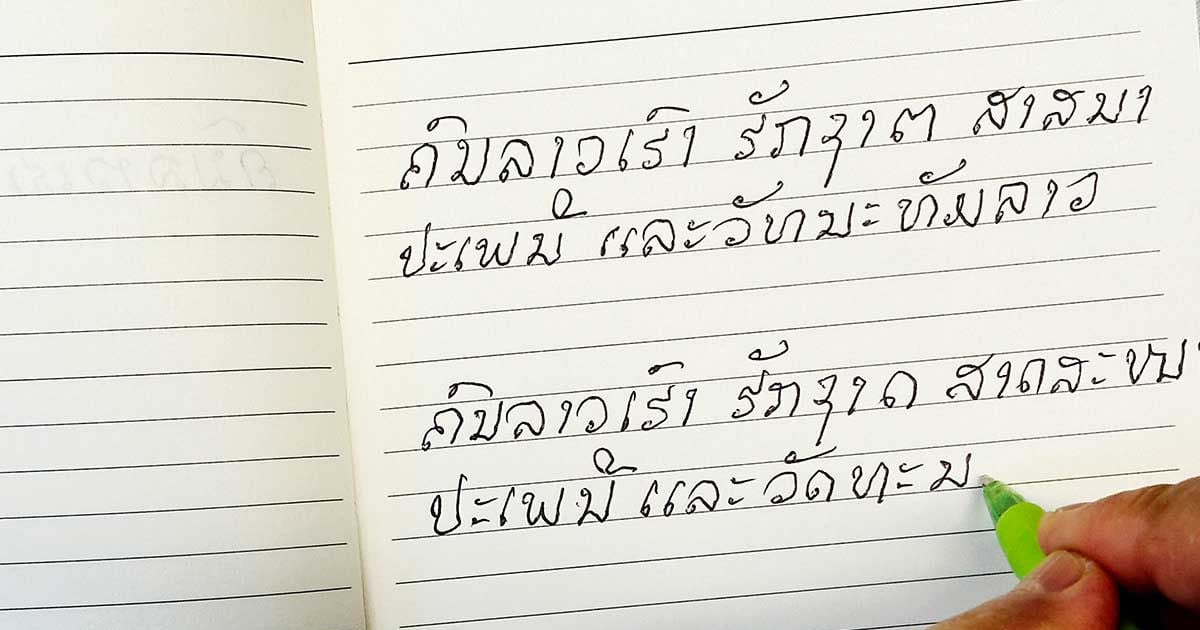 ຄົນລາວເຮົາ ຮັກຊາຕ ສາສນາ
ປະເພນີ ແລະວັທນະທັມລາວ
ຄົນລາວເຮົາ ຮັກຊາດ ສາດສະໜາ
ປະເພນີ ແລະ ວັດທະນ